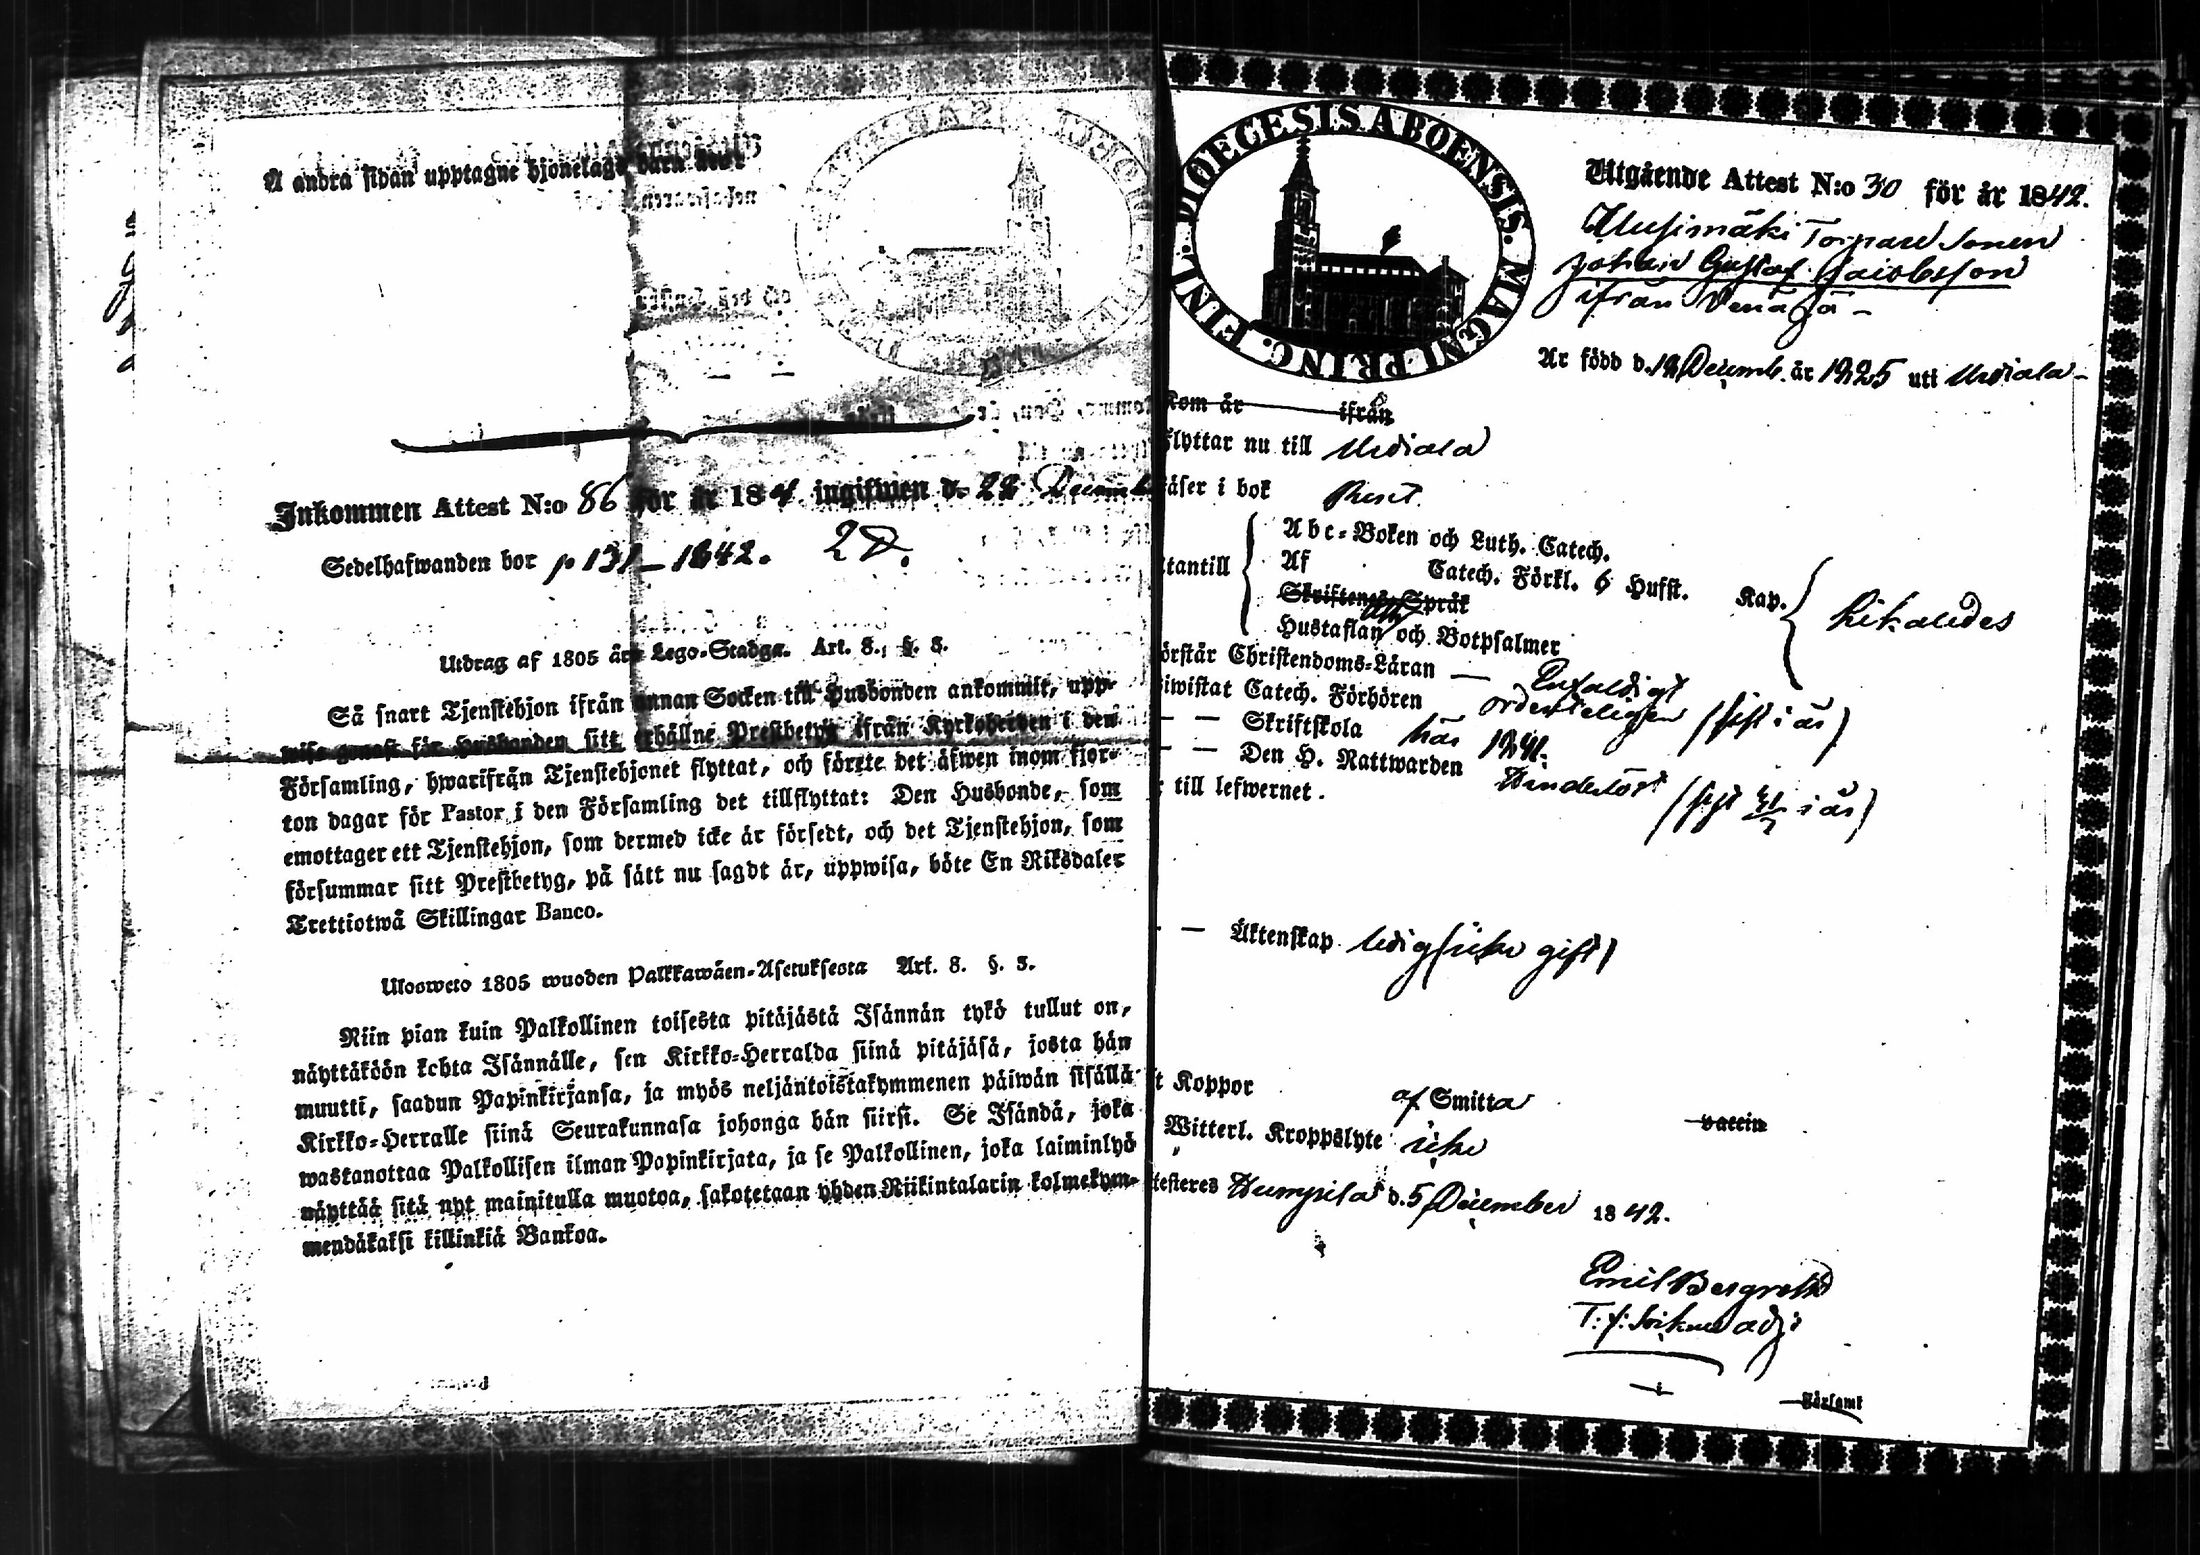 Å andra sidan upptagne hjonelags barn äro:
Inkommen Attest N:o 86 för år 184 ingifwen d. 22 Decemb
Sedelhafwanden bor p 131 – 1842. 2
Utdrag af 1805 års Lego-Stadga. Art. 8. §. 3.
Så snart Tjenstehjon ifrån annan Socken till Husbonden ankommit, upp-
wise genast för Husbonden sitt erhållne Prestbetyg ifrån Kyrkoherden i den
Församling, hwarifrån Tjenstehjonet flyttat, och förete det äfwen inom fjor-
ton dagar för Pastor i den Församling det tillflyttat: Den Husbonde, som
emottager ett Tjenstehjon, som dermed icke är försedt, och det Tjenstehjon, som
försummar sitt Prestbetyg, på sätt nu sagdt är, uppwisa, böte En Riksdaler
Trettiotwå Skillingar Banco.
Ulosweto 1805 wuoden Palkkawäen-Asetuksesta Art. 8. §. 3.
Niin pian kuin Palkollinen toisesta pitäjästä Isännän tykö tullut on,
näyttäköön kohta Isännälle, sen Kirkko-Herralda siinä pitäjäsä, josta hän
muutti, saadun Papinkirjansa, ja myös neljäntoistakymmenen päiwän sisällä
Kirkko-Herralle siinä Seurakunnasa johonga hän siirsi. Se Isändä, joka
wastanottaa Palkollisen ilman Papinkirjata, ja se Palkollinen, joka laiminlyö
näyttää sitä nyt mainitulla muotoa, sakotetaan yhden Riikintalarin kolmekym-
mendäkaksi killinkiä Bankoa.
DIOECESIS ABOENSIS. MAGNI PRINC. FINL.
Utgående Attest N:o 30 för år 1842.
Torpare Sonen
Johan Gustaf Jacobsson
ifrån Venäjä –
Är född d. 12 Decemb. år 1825 uti Urdiala –
Kom år ifrån
flyttar nu till Urdiala
äser i bok
Abc-Boken och Luth. Catech.
tantill Af Catech. Förkl. 6 Hufst. Kap.
Skriftenes Språk
Hustaflan och Botpsalmer
örstår Christendoms-Läran — Enfaldigt
iwistat Catech. Förhören ordenteligen (sist i år)
— — Skriftskola här 1841.
— — Den H. Nattwarden (sist i år)
till lefwernet.
— Äktenskap ledig (icke gift)
t Koppor af Smitta vaccin
Witterl. Kroppslyte icke
testeres Humppila d. 5 December 1842.
Emil Bergroth
Församl